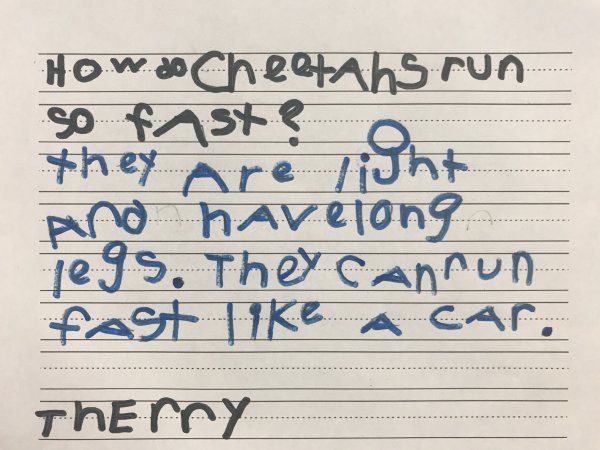 How do CheetAhs run
so fAst?
they Are light
And hAve long
legs. They cAn run
fAst like A cAr.
ThErry